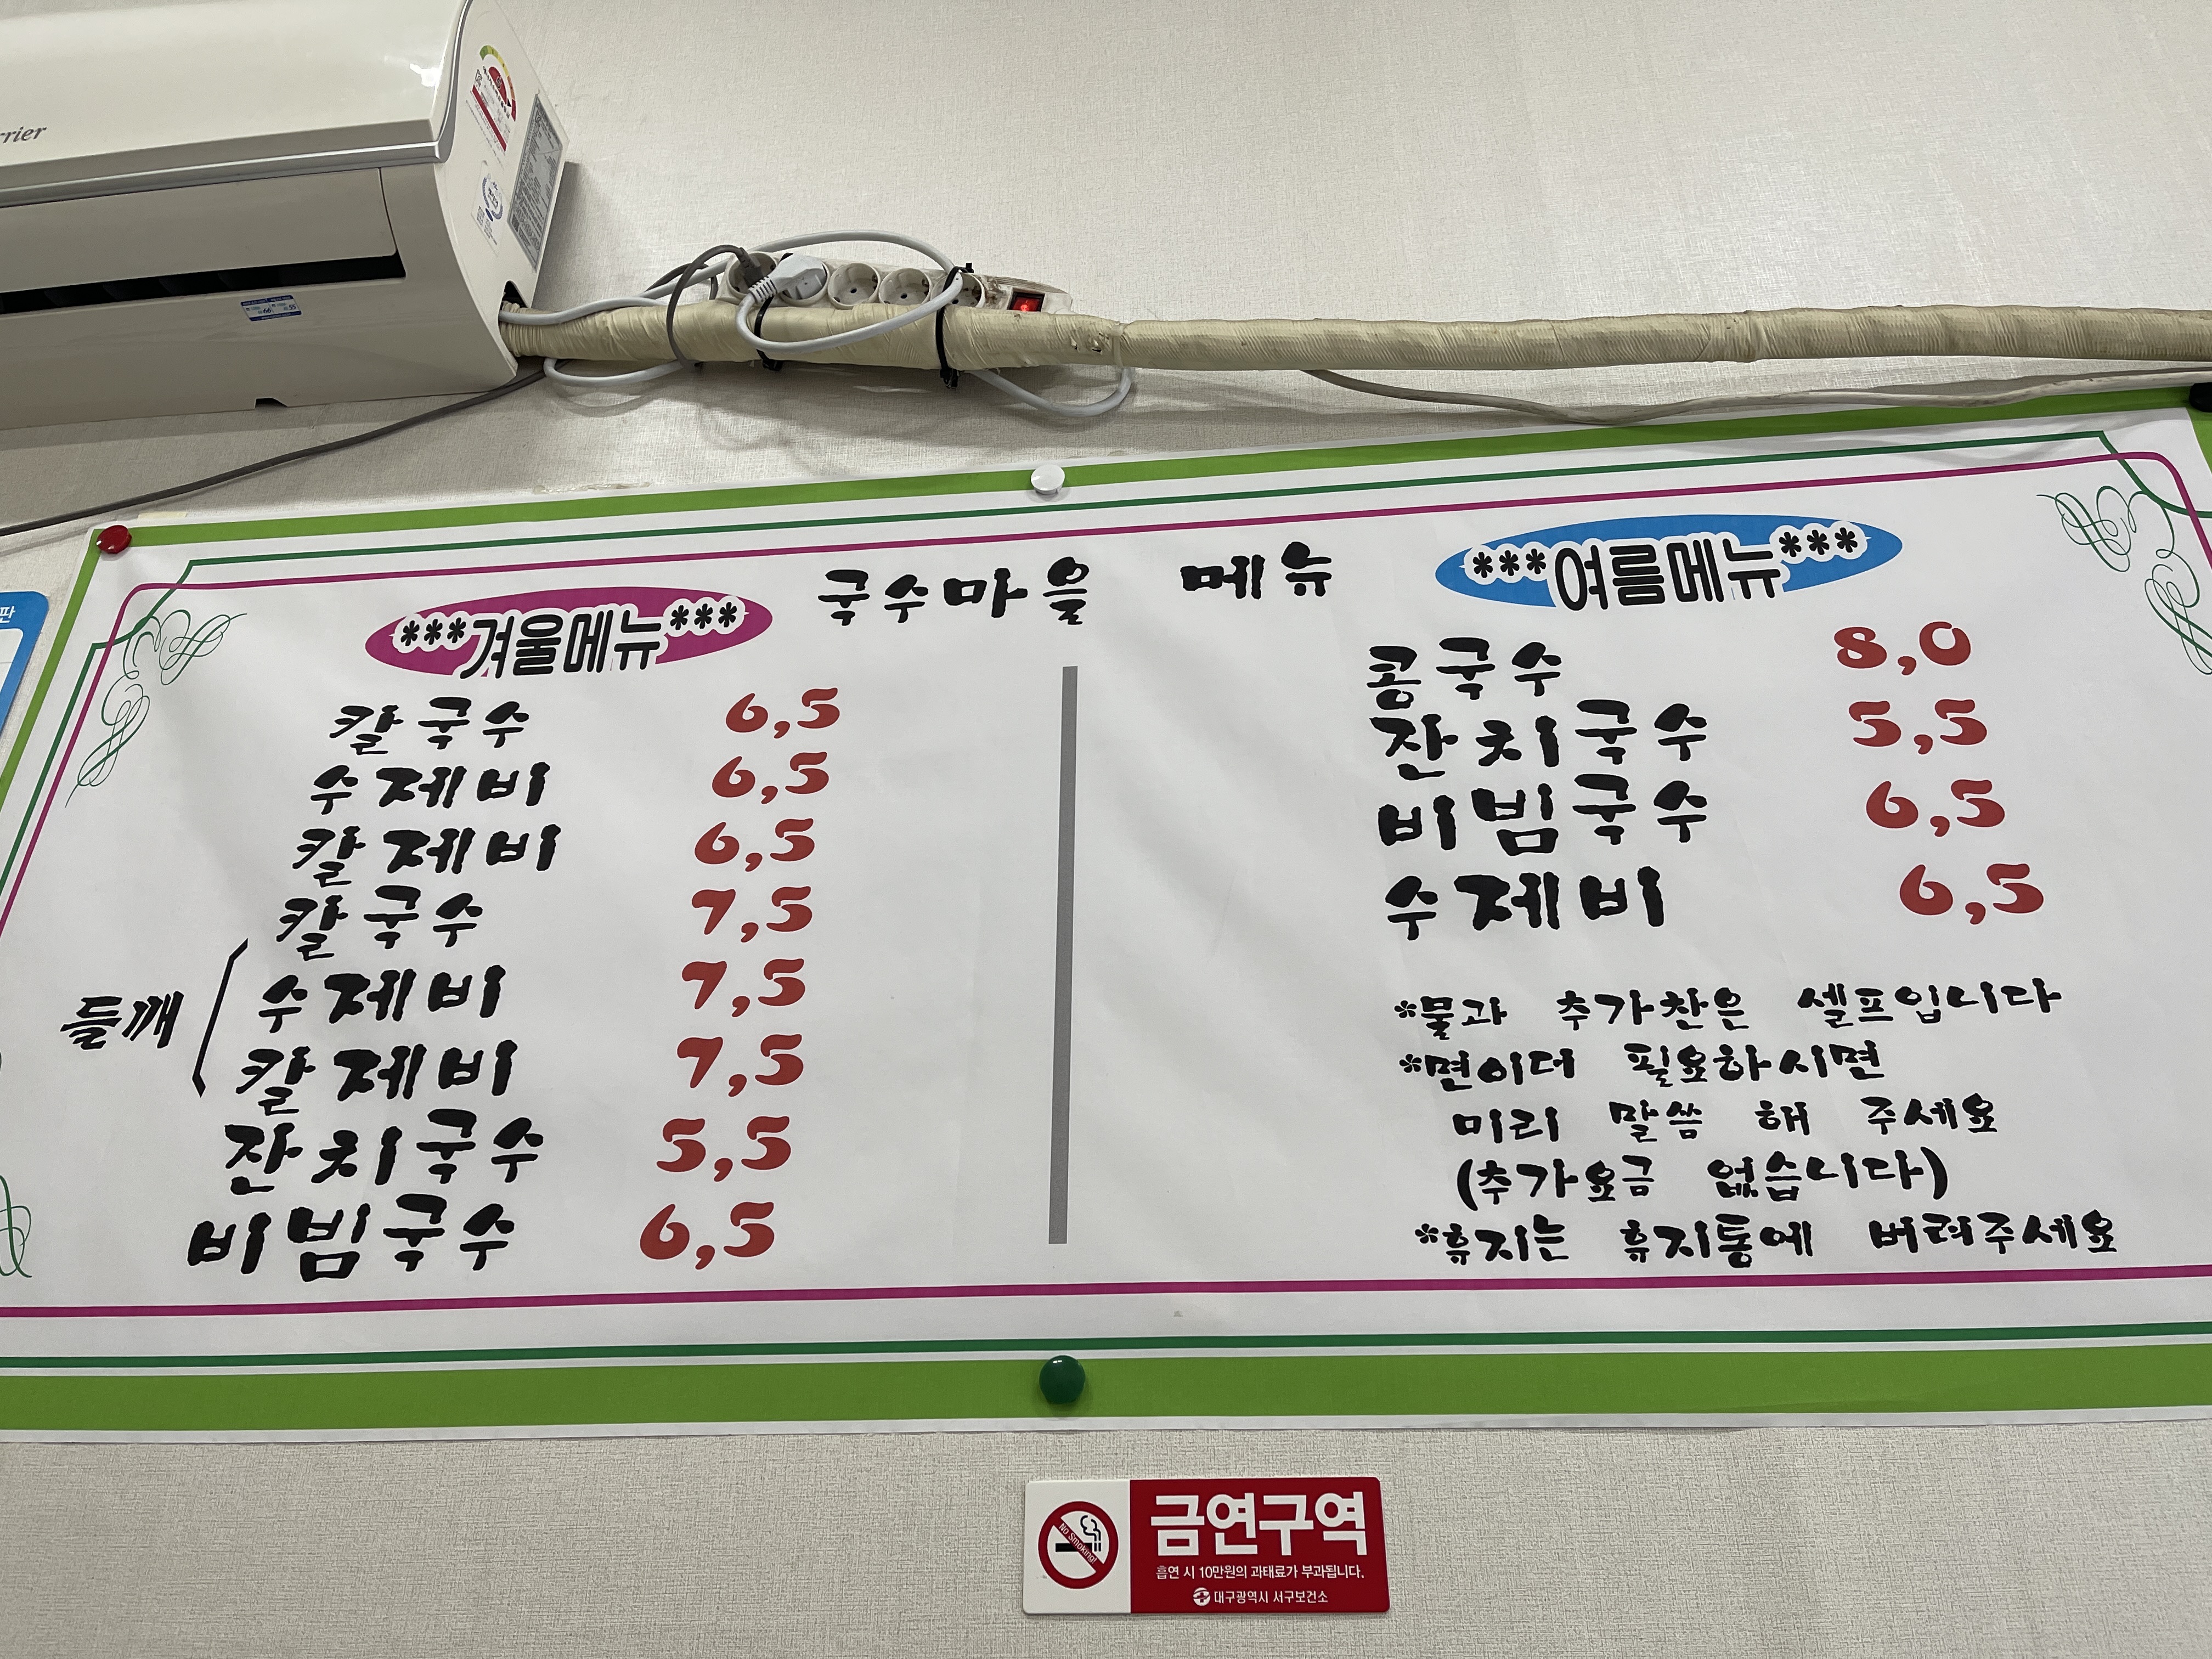 rrier
판
국수마을 메뉴
***겨울메뉴***
칼국수 6,5
수제비 6,5
칼제비 6,5
들깨
칼국수 7,5
수제비 7,5
칼제비 7,5
잔치국수 5,5
비빔국수 6,5
***여름메뉴***
콩국수 8,0
잔치국수 5,5
비빔국수 6,5
수제비 6,5
*물과 추가찬은 셀프입니다
*면이더 필요하시면
미리 말씀 해 주세요
(추가요금 없습니다)
*휴지는 휴지통에 버려주세요
No Smoking!
금연구역
흡연 시 10만원의 과태료가 부과됩니다.
대구광역시 서구보건소